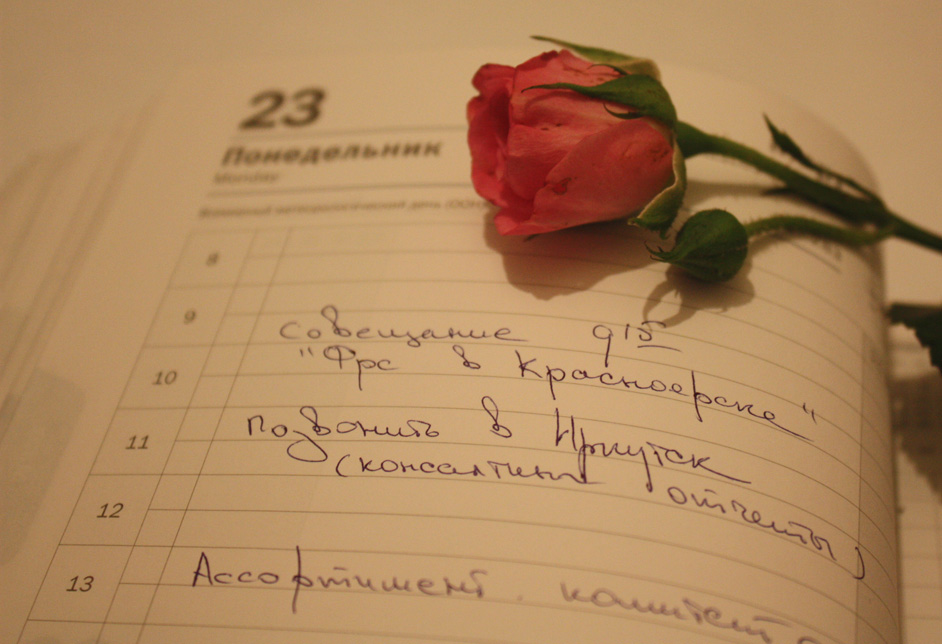 23
Понедельник
Monday
Всемирный метеорологический день (ООН
8
9
совещание 9 15
"Фрс в Красноерске"
10
11
позвонить в Иркутск
(консалтинг отчеты)
12
13
Ассортимент. комитет